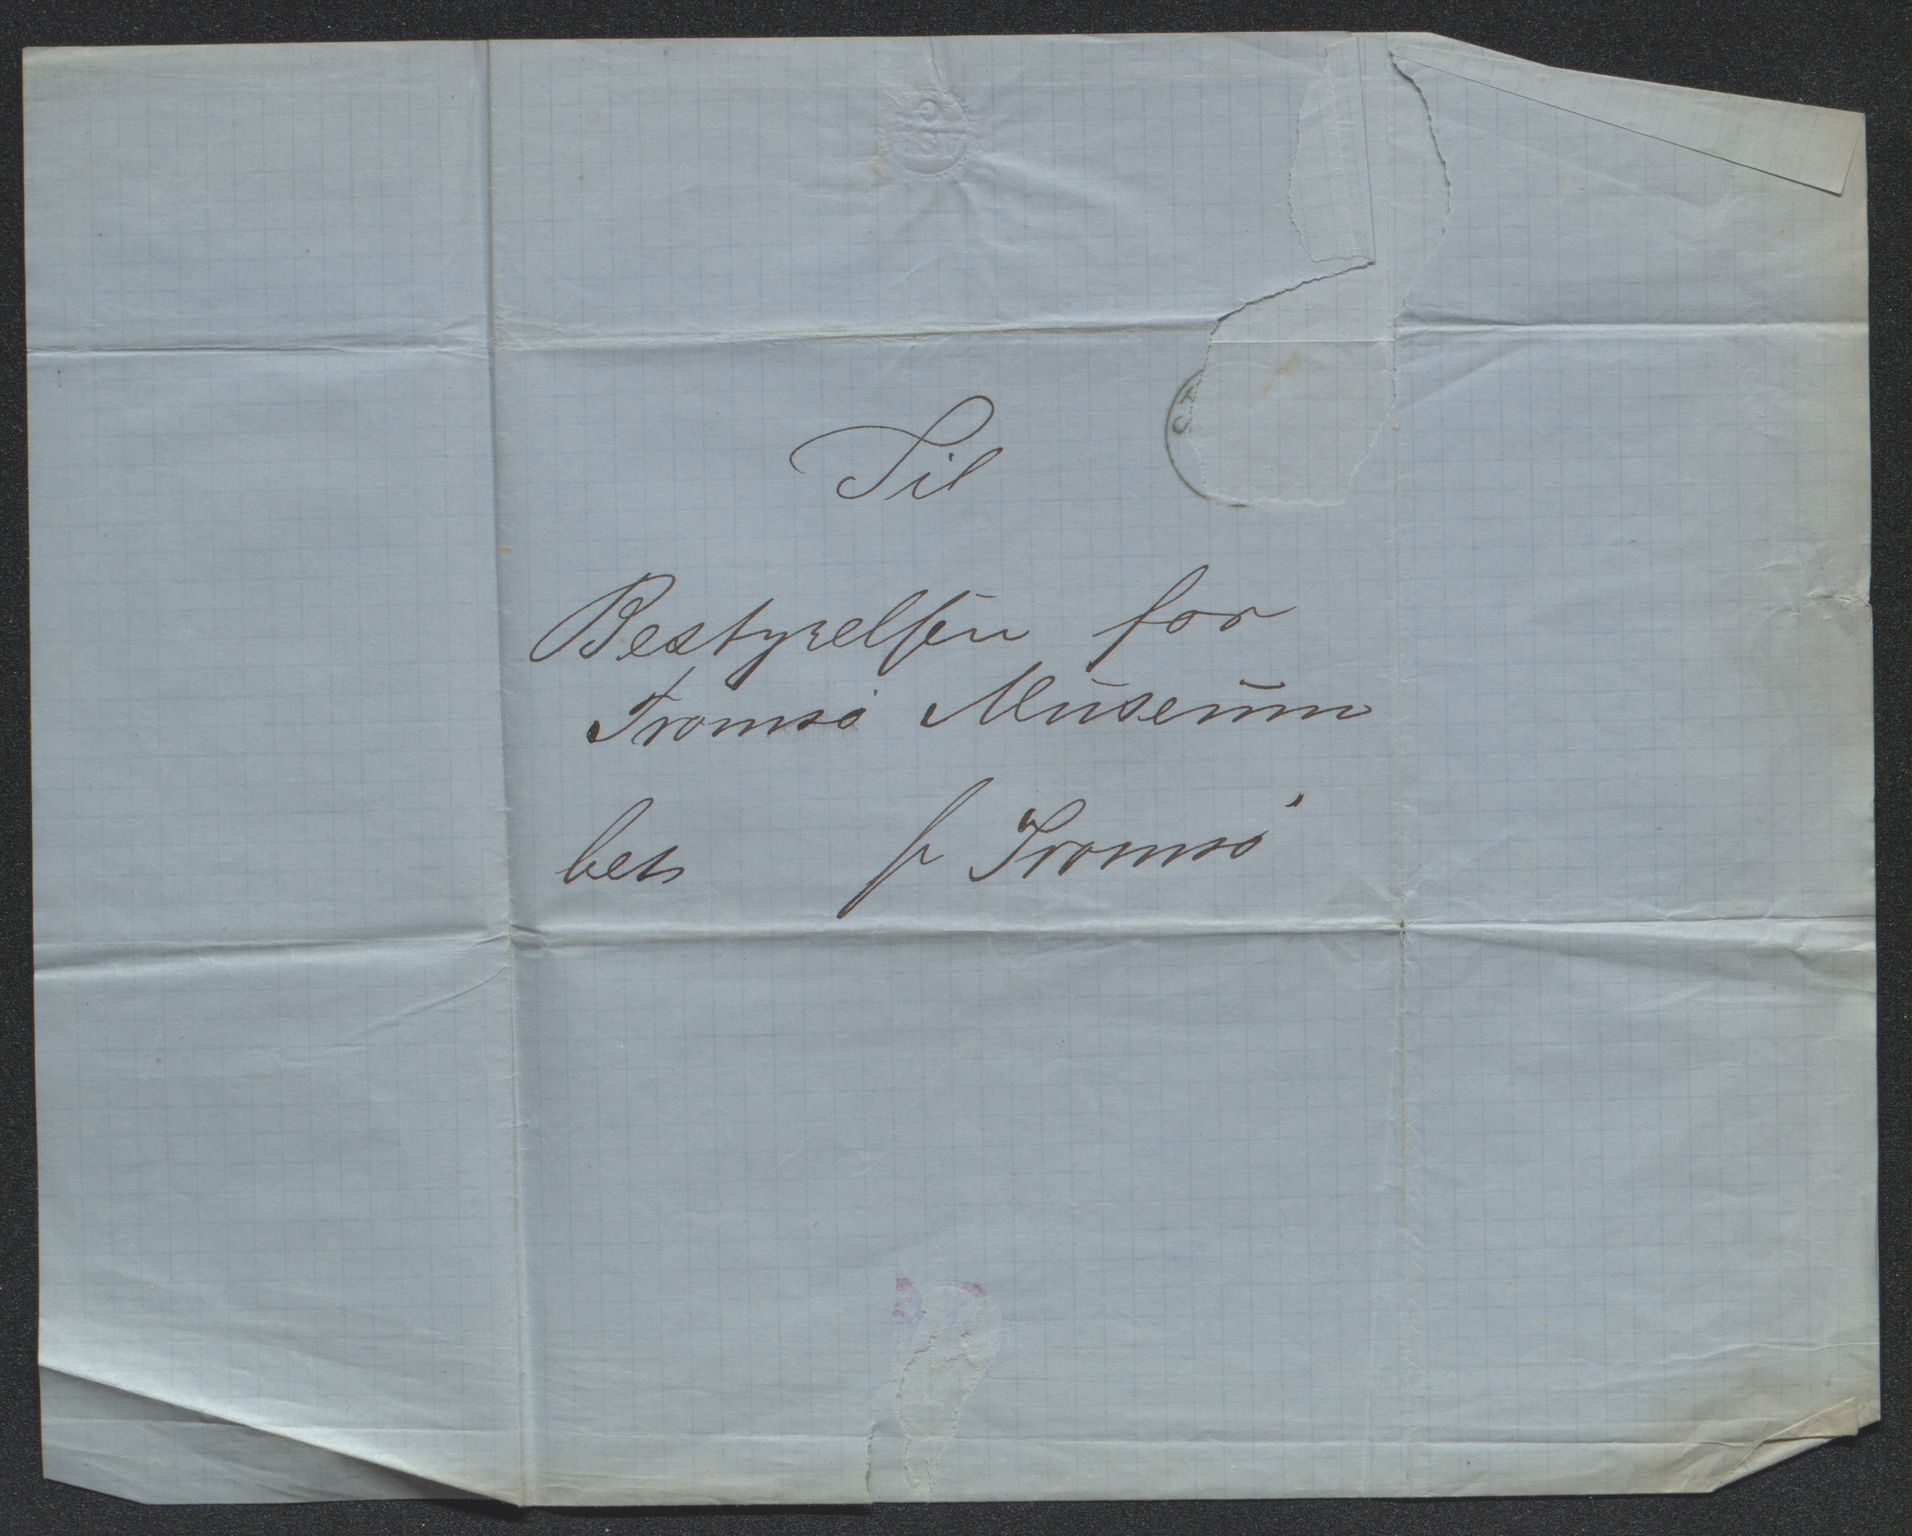 Til
Bestyrelsen for
Tromsø Museum
bet. p Tromsø